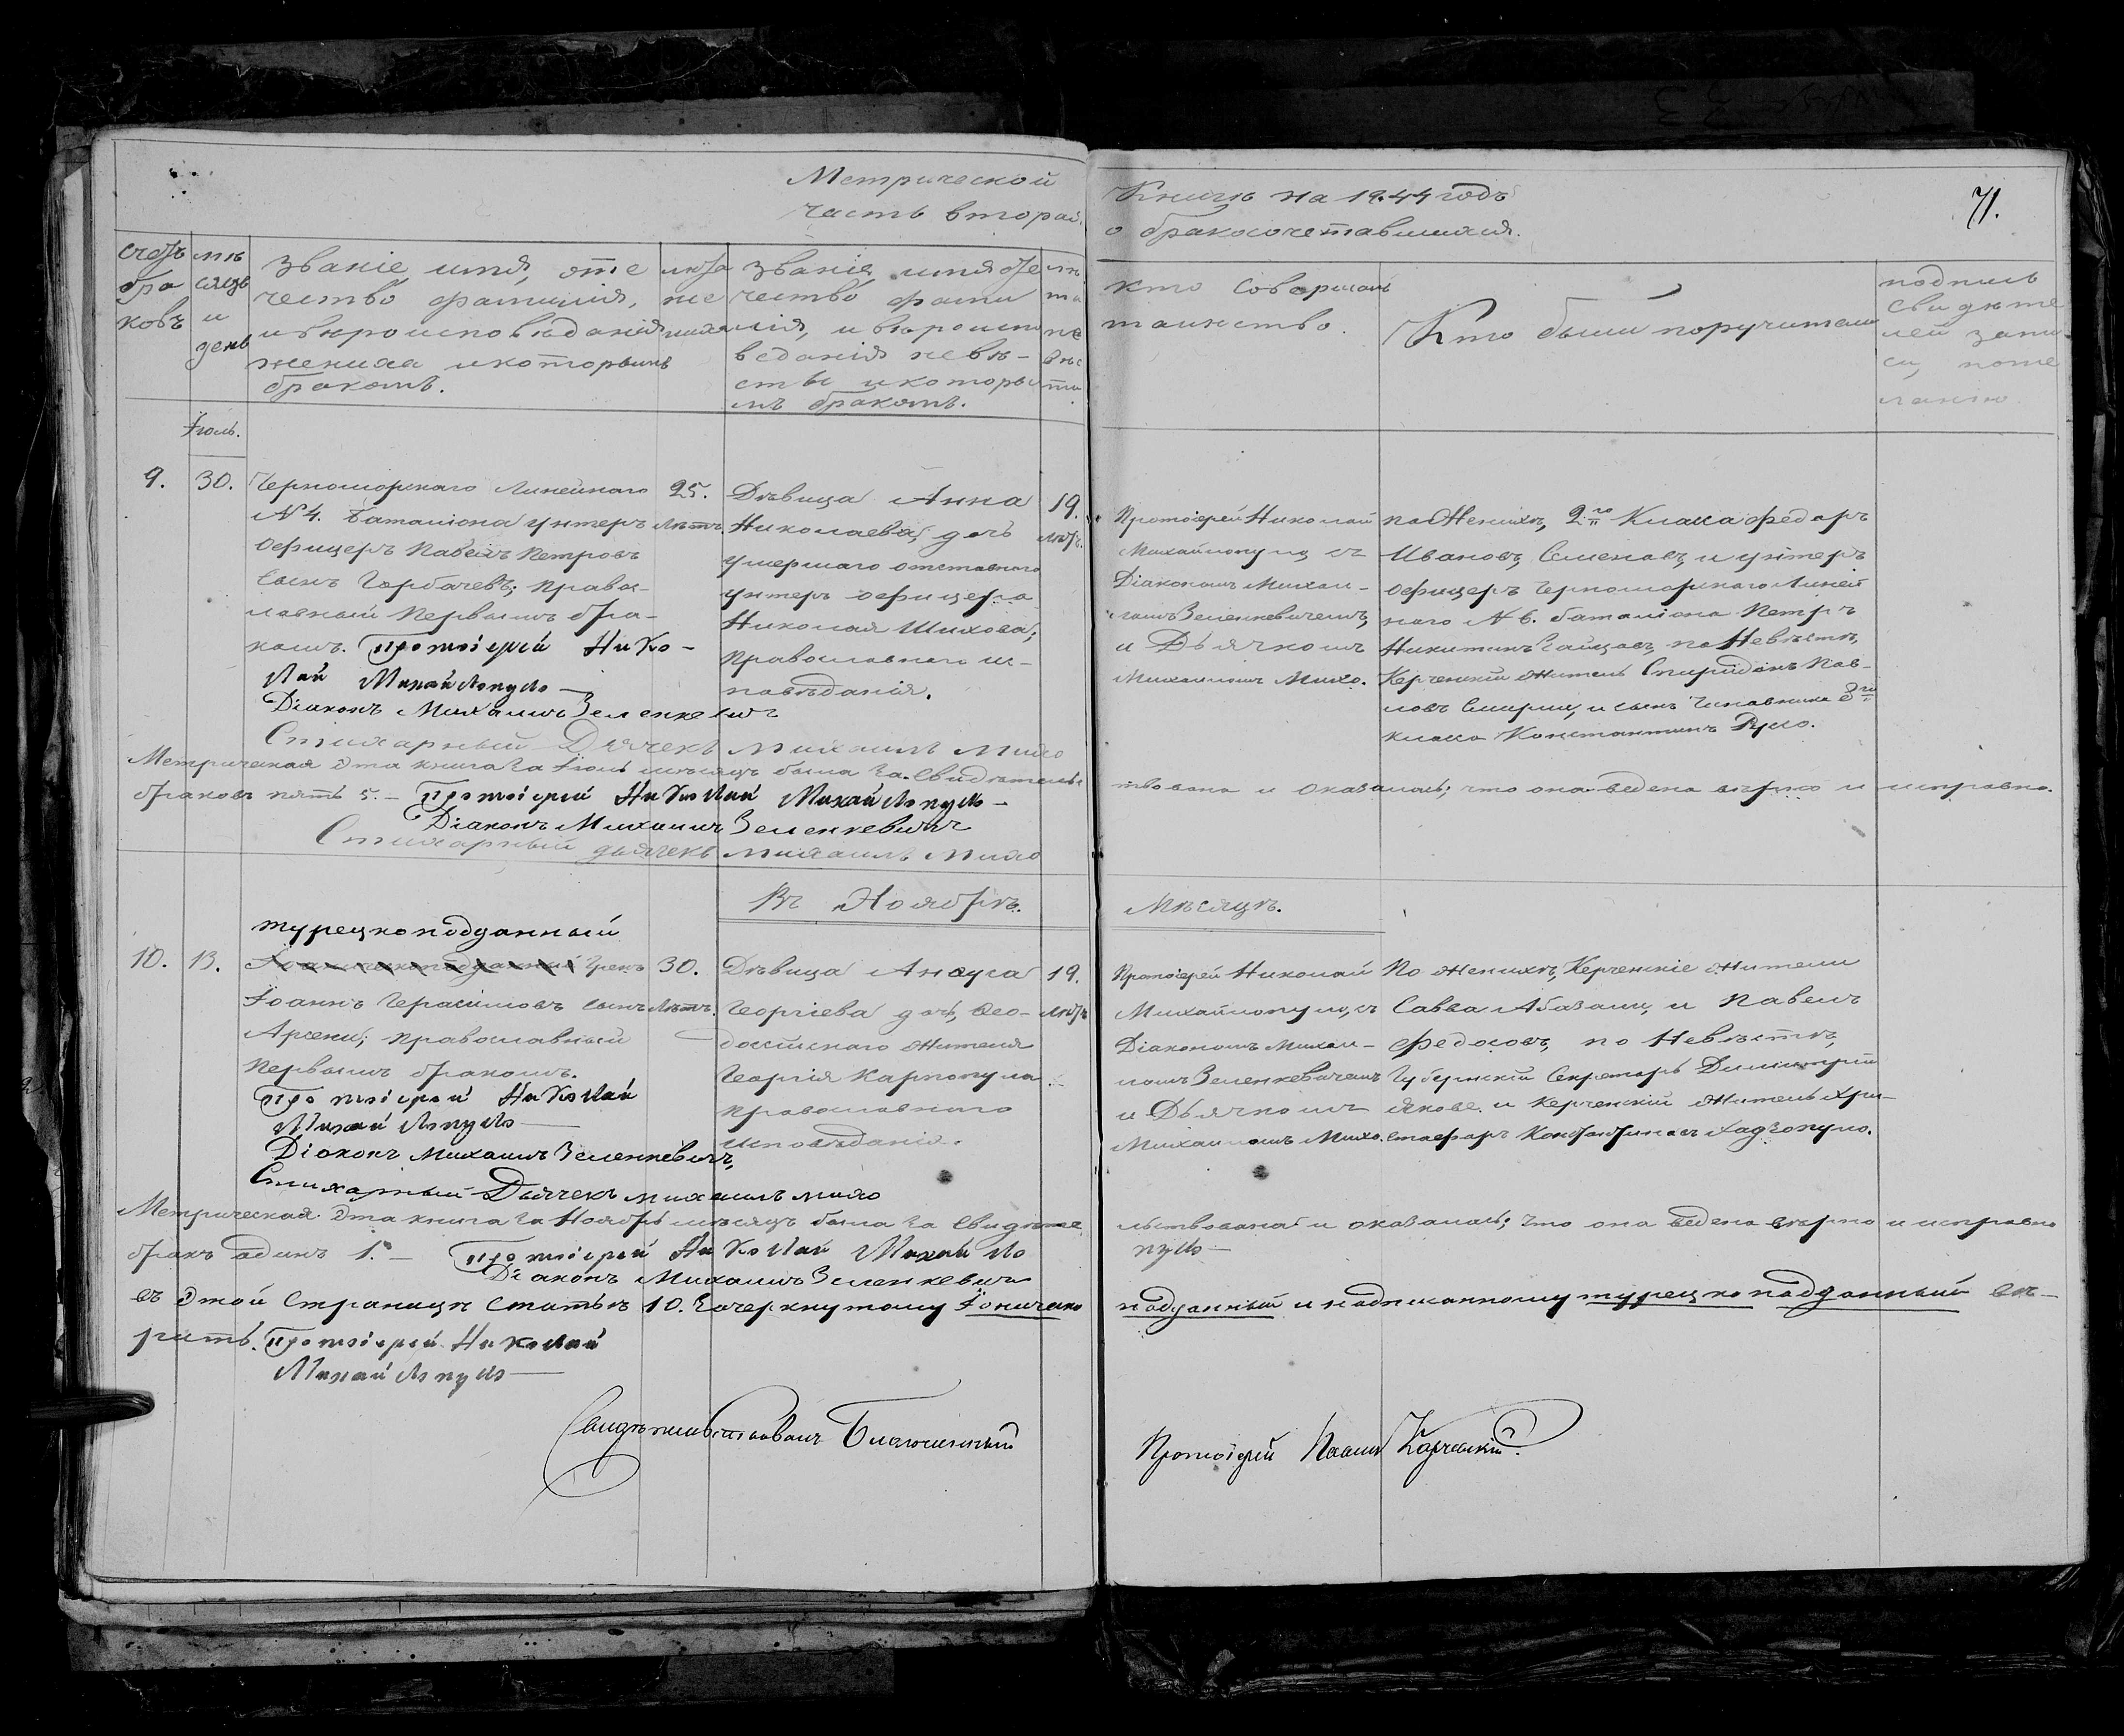 Метрической
часть вторая
Книги на 1844 годъ
о бракосочетавшихся.
71.
счетъ браковъ
мѣсяцъ и день
Званіе, имя, отечество фамилія, и вѣроисповѣданія жениха и которымъ бракомъ.
лѣта жениха
Званіе, имя, отечество фамилія, и вѣроисповѣданія невѣсты и которымъ бракомъ.
лѣта невѣсты
кто совершалъ таинство.
Кто были поручители
подпись свидѣтелей записи, по желанію
Іюль.
9.
30.
Черноморскаго Линейнаго
№ 4. Баталіона унтеръ
офицеръ Павелъ Петровъ
сынъ Горбачевъ; правос-
лавный первымъ бра-
комъ. Протоіерей Нико-
лай Михайлопуло
Діаконъ Михаилъ Зеленкевичъ
Стихарный Дьячекъ Михаилъ Михо
25.
лѣтъ.
Дѣвица Анна
Николаева, дочь
умершаго отставнаго
унтеръ офицера
Николая Шихова;
православнаго ис-
повѣданія.
19.
лѣтъ.
Протоіерей Николай
Михайлопуло, съ
Діакономъ Михаи-
ломъ Зеленкевичемъ,
и Дьячкомъ
Михаиломъ Михо.
по Женихѣ, 2го Класса Федоръ
Ивановъ Семеновъ, и унтеръ
офицеръ Черноморскаго Линей
наго № 6. баталіона Петръ
Никитинъ по Невѣстѣ,
Керченскій житель Спиридонъ Пав-
ловъ и сынъ Чиновника
класса Константинъ
Метрическая эта книга за Іюль мѣсяцъ была за свидѣтельс
твована и оказалось; что она ведена вѣрно и исправно.
браковъ пять 5. — Протоіерей Николай Михайлопуло —
Діаконъ Михаилъ Зеленкевичъ
Стихарный дьячекъ Михаилъ Михо
Въ Ноябрѣ
Мѣсяцѣ.
10.
13.
турецкоподданный
Іоническоподданный Грекъ
Іоаннъ Герасимовъ сынъ
Арсени; православный
первымъ бракомъ.
Протоіерей Николай
Михайлопуло —
Діаконъ Михаилъ Зеленкевичъ,
Стихарный Дьячекъ Михаилъ Михо
30.
лѣтъ.
Дѣвица
Георгіева дочь, Ѳео-
досійскаго жителя
Георгія Карпопула
православнаго
исповѣданія.
19.
лѣтъ
Протоіерей Николай
Михайлопуло, съ
Діакономъ Михаи-
ломъ Зеленкевичемъ
и Дьячкомъ
Михаиломъ Михо.
По женихѣ, Керченскіе жители
Савва и Павелъ
Федосовъ, по Невѣстѣ,
Губернскій Секретарь Димитрій
и Керченскій житель Хри-
стофоръ Константиновъ Хаджопуло.
Метрическая эта книга за Ноябрь мѣсяцъ была за свидѣте
льствована и оказалось; что она ведена вѣрно и исправно
бракъ адинъ 1. — Протоіерей Николай Михайло
пуло —
Діаконъ Михаилъ Зеленкевичъ
въ этой страницѣ статьѣ 10. Зачеркнутому Іоническо
подданный и надписанному турецкоподданный вѣ-
рить. Протоіерей Николай
Михайлопуло —
Свидѣтельствовалъ Благочинный
Протоіерей